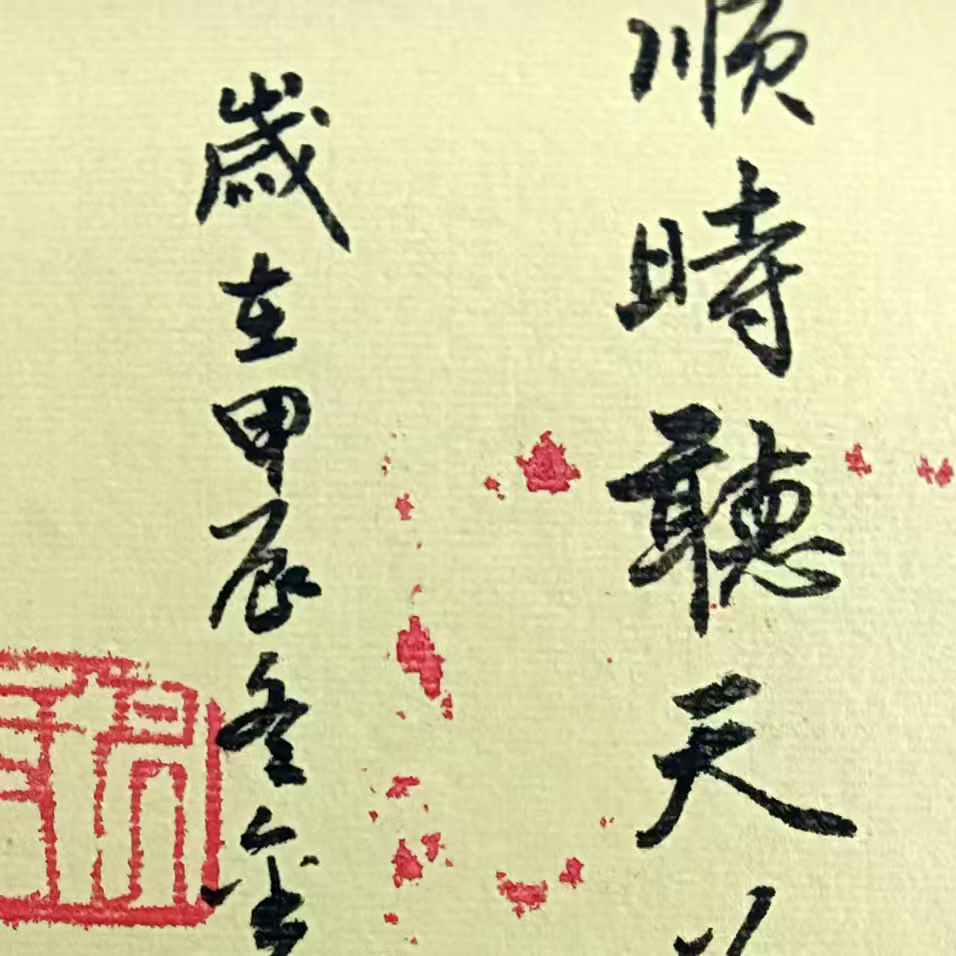 順時聽天
歲在甲辰冬